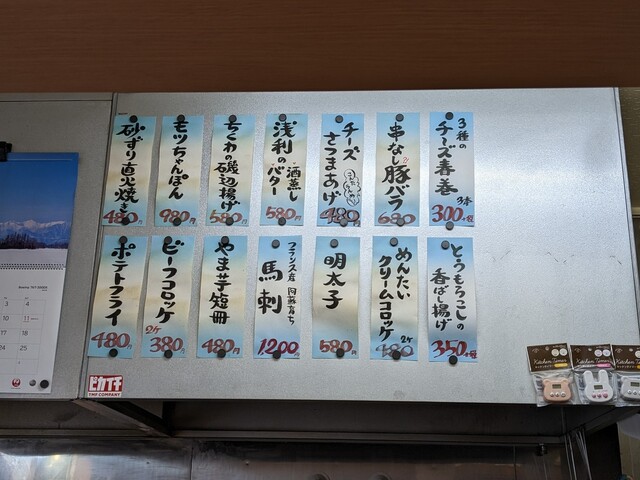 3種の
チーズ春巻
3本
300
串なし豚バラ
680
チーズ
さつまあげ
480
浅利の
酒蒸し
バター
580円
ちくわの磯辺揚げ
580円
モツちゃんぽん
980円
砂ずり直火焼き
480円
とうもろこしの
香ばし揚げ
350
めんたい
クリームコロッケ
2ケ
480
明太子
580円
フランス産 阿蘇育ち
馬刺
1,200
やま芋短冊
480円
ビーフコロッケ
2ケ
380円
ポテトフライ
480円
ピカイチ
THE COMPANY
Kitchen Timer
Kitchen Timer